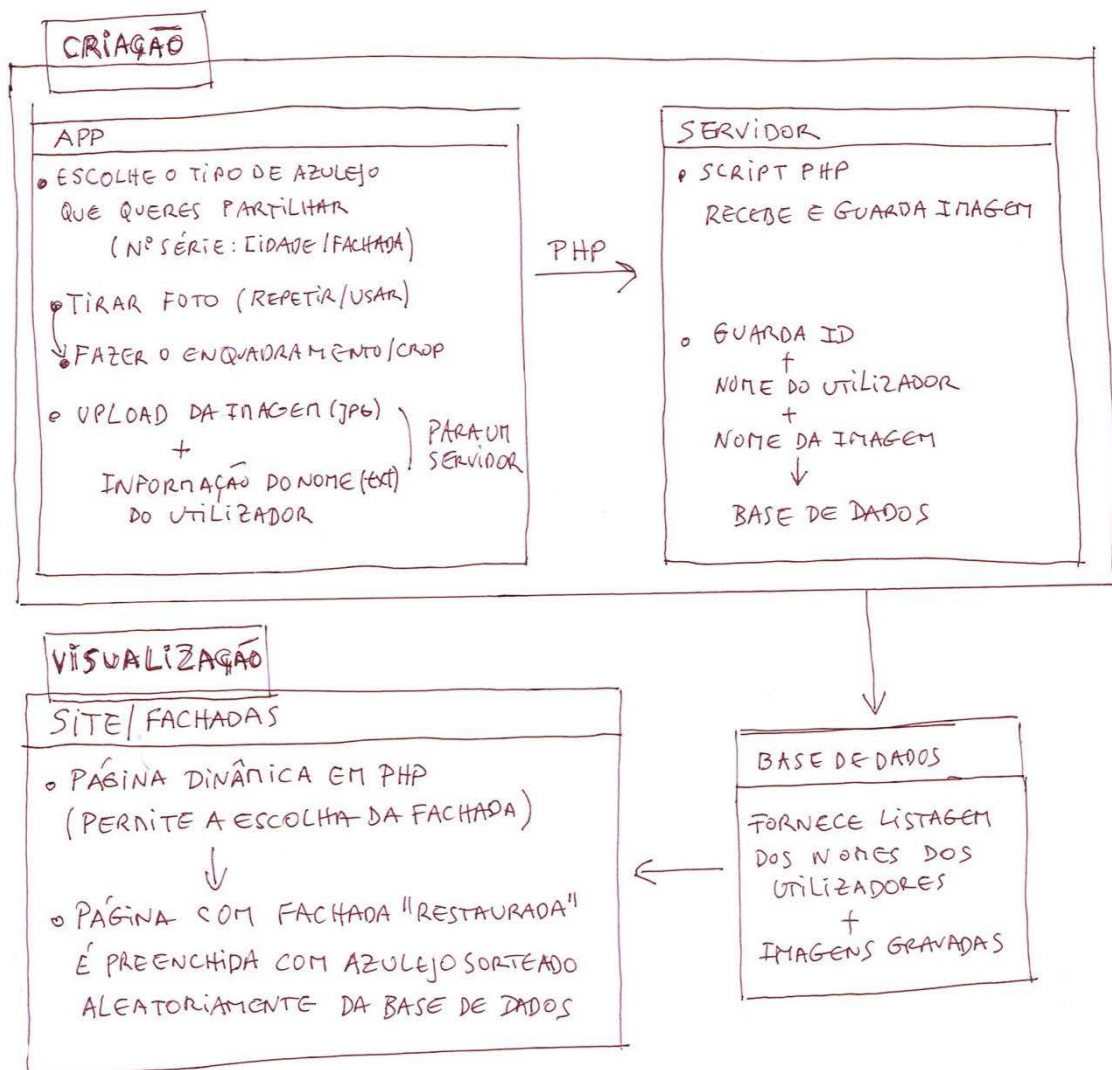 CRIAÇÃO
APP
• ESCOLHE O TIPO DE AZULEJO
QUE QUERES PARTILHAR
(Nº SÉRIE: CIDADE/FACHADA)
• TIRAR FOTO (REPETIR/USAR)
• FAZER O ENQUADRAMENTO/CROP
• UPLOAD DA IMAGEM (JPG)
+
INFORMAÇÃO DO NOME (txt)
DO UTILIZADOR
PARA UM
SERVIDOR
PHP
SERVIDOR
• SCRIPT PHP
RECEBE E GUARDA IMAGEM
• GUARDA ID
+
NOME DO UTILIZADOR
+
NOME DA IMAGEM
BASE DE DADOS
VISUALIZAÇÃO
SITE/FACHADAS
• PÁGINA DINÂMICA EM PHP
(PERMITE A ESCOLHA DA FACHADA)
• PÁGINA COM FACHADA "RESTAURADA"
É PREENCHIDA COM AZULEJO SORTEADO
ALEATORIAMENTE DA BASE DE DADOS
BASE DE DADOS
FORNECE LISTAGEM
DOS NOMES DOS
UTILIZADORES
+
IMAGENS GRAVADAS